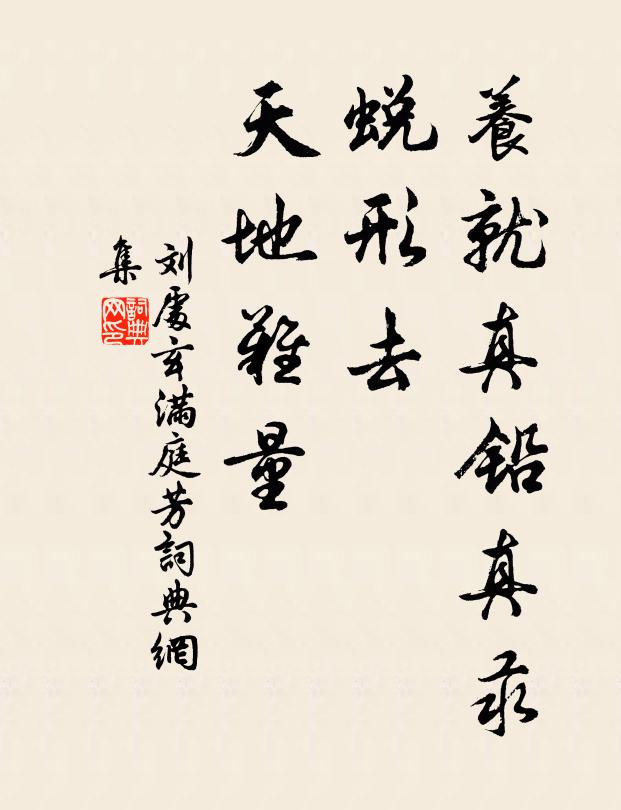 養就真鉛真汞
蜕形去
天地難量
刘處玄滿庭芳詞典網
集
詞典
网印